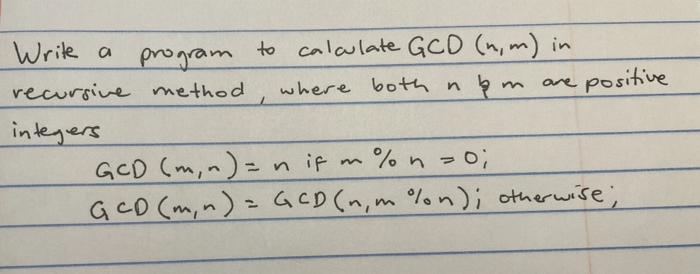 Write a program to calculate GCD (n,m) in
recursive method, where both n & m are positive
integers
GCD (m,n) = n if m % n = 0;
GCD (m,n) = GCD (n, m % n); otherwise;